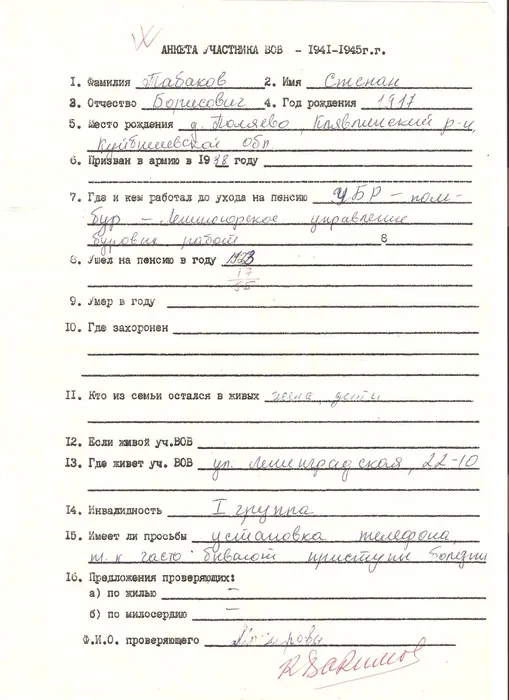 АНКЕТА УЧАСТНИКА ВОВ - 1941-1945г.г.
1. Фамилия Табаков 2. Имя Степан
3. Отчество Борисович 4. Год рождения 1917
5. Место рождения д. Поляево, Клявлинский р-н,
Куйбышевской обл.
6. Призван в армию в 1938 году
7. Где и кем работал до ухода на пенсию УБР - пом-
бур - Лениногорское управление
буровик работ 8
8. Ушел на пенсию в году 1973
17
9. Умер в году
10. Где захоронен
11. Кто из семьи остался в живых жена, дети
12. Если живой уч.ВОВ
13. Где живет уч. ВОВ ул. Ленинградская, 22-10
14. Инвалидность I группа
15. Имеет ли просьбы установка телефона,
т.к часто бывают приступы болезни
16. Предложения проверяющих:
а) по жилью –
б) по милосердию –
Ф.И.О. проверяющего